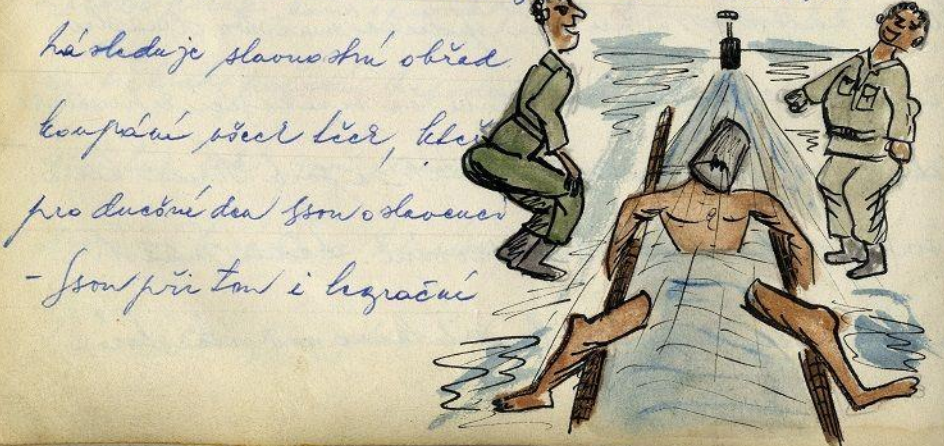 následuje slavnostní obřad
koupání všech těch, kteř
pro dnešní den jsou oslavenci
- jsou při tom i legrační